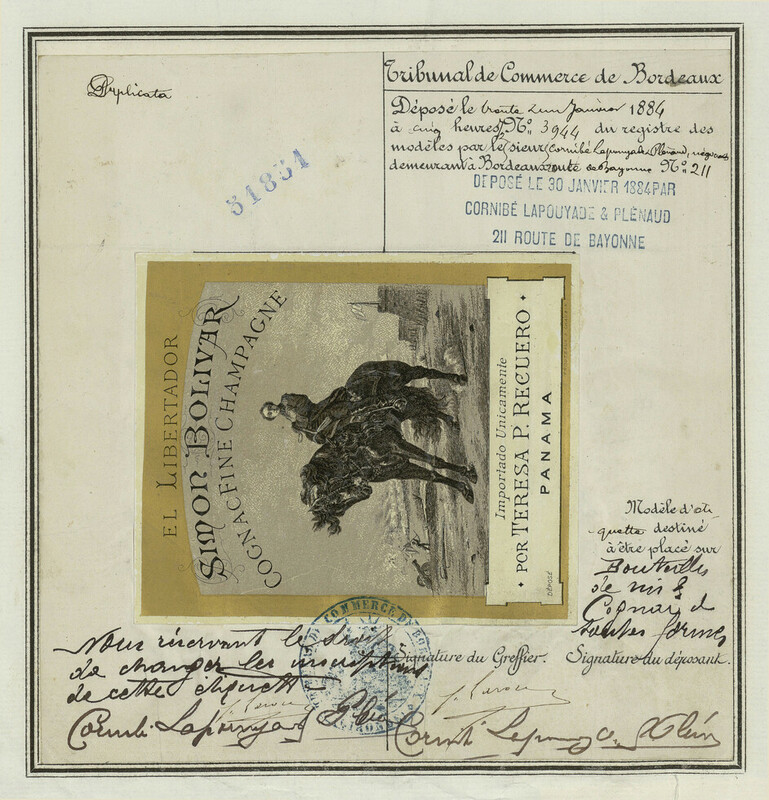 Duplicata
Tribunal de Commerce de Bordeaux
Déposé le trente Janvier 1884
à cinq heures, Nº 3944 du registre des
modèles par le sieur Cornibé Lapouyade & Plénaud,
demeurant à Bordeaux route de Bayonne Nº 211
DEPOSÉ LE 30 JANVIER 1884 PAR
CORNIBÉ LAPOUYADE & PLÉNAUD
211 ROUTE DE BAYONNE
EL LIBERTADOR
SIMON BOLIVAR
COGNAC FINE CHAMPAGNE
Importado Unicamente
POR TERESA P. RECUERO
PANAMA
DÉPOSÉ
Modèle d'éti
quette destiné
à être placé sur
Bouteilles
de vin &
Cognac de
toutes formes
Nous réservant le droit
de changer les inscriptions
de cette étiquette
COMMERCE DE
Signature du Greffier.
Signature du déposant.
Cornibé Lapouyade
Cornibé Lapouyade